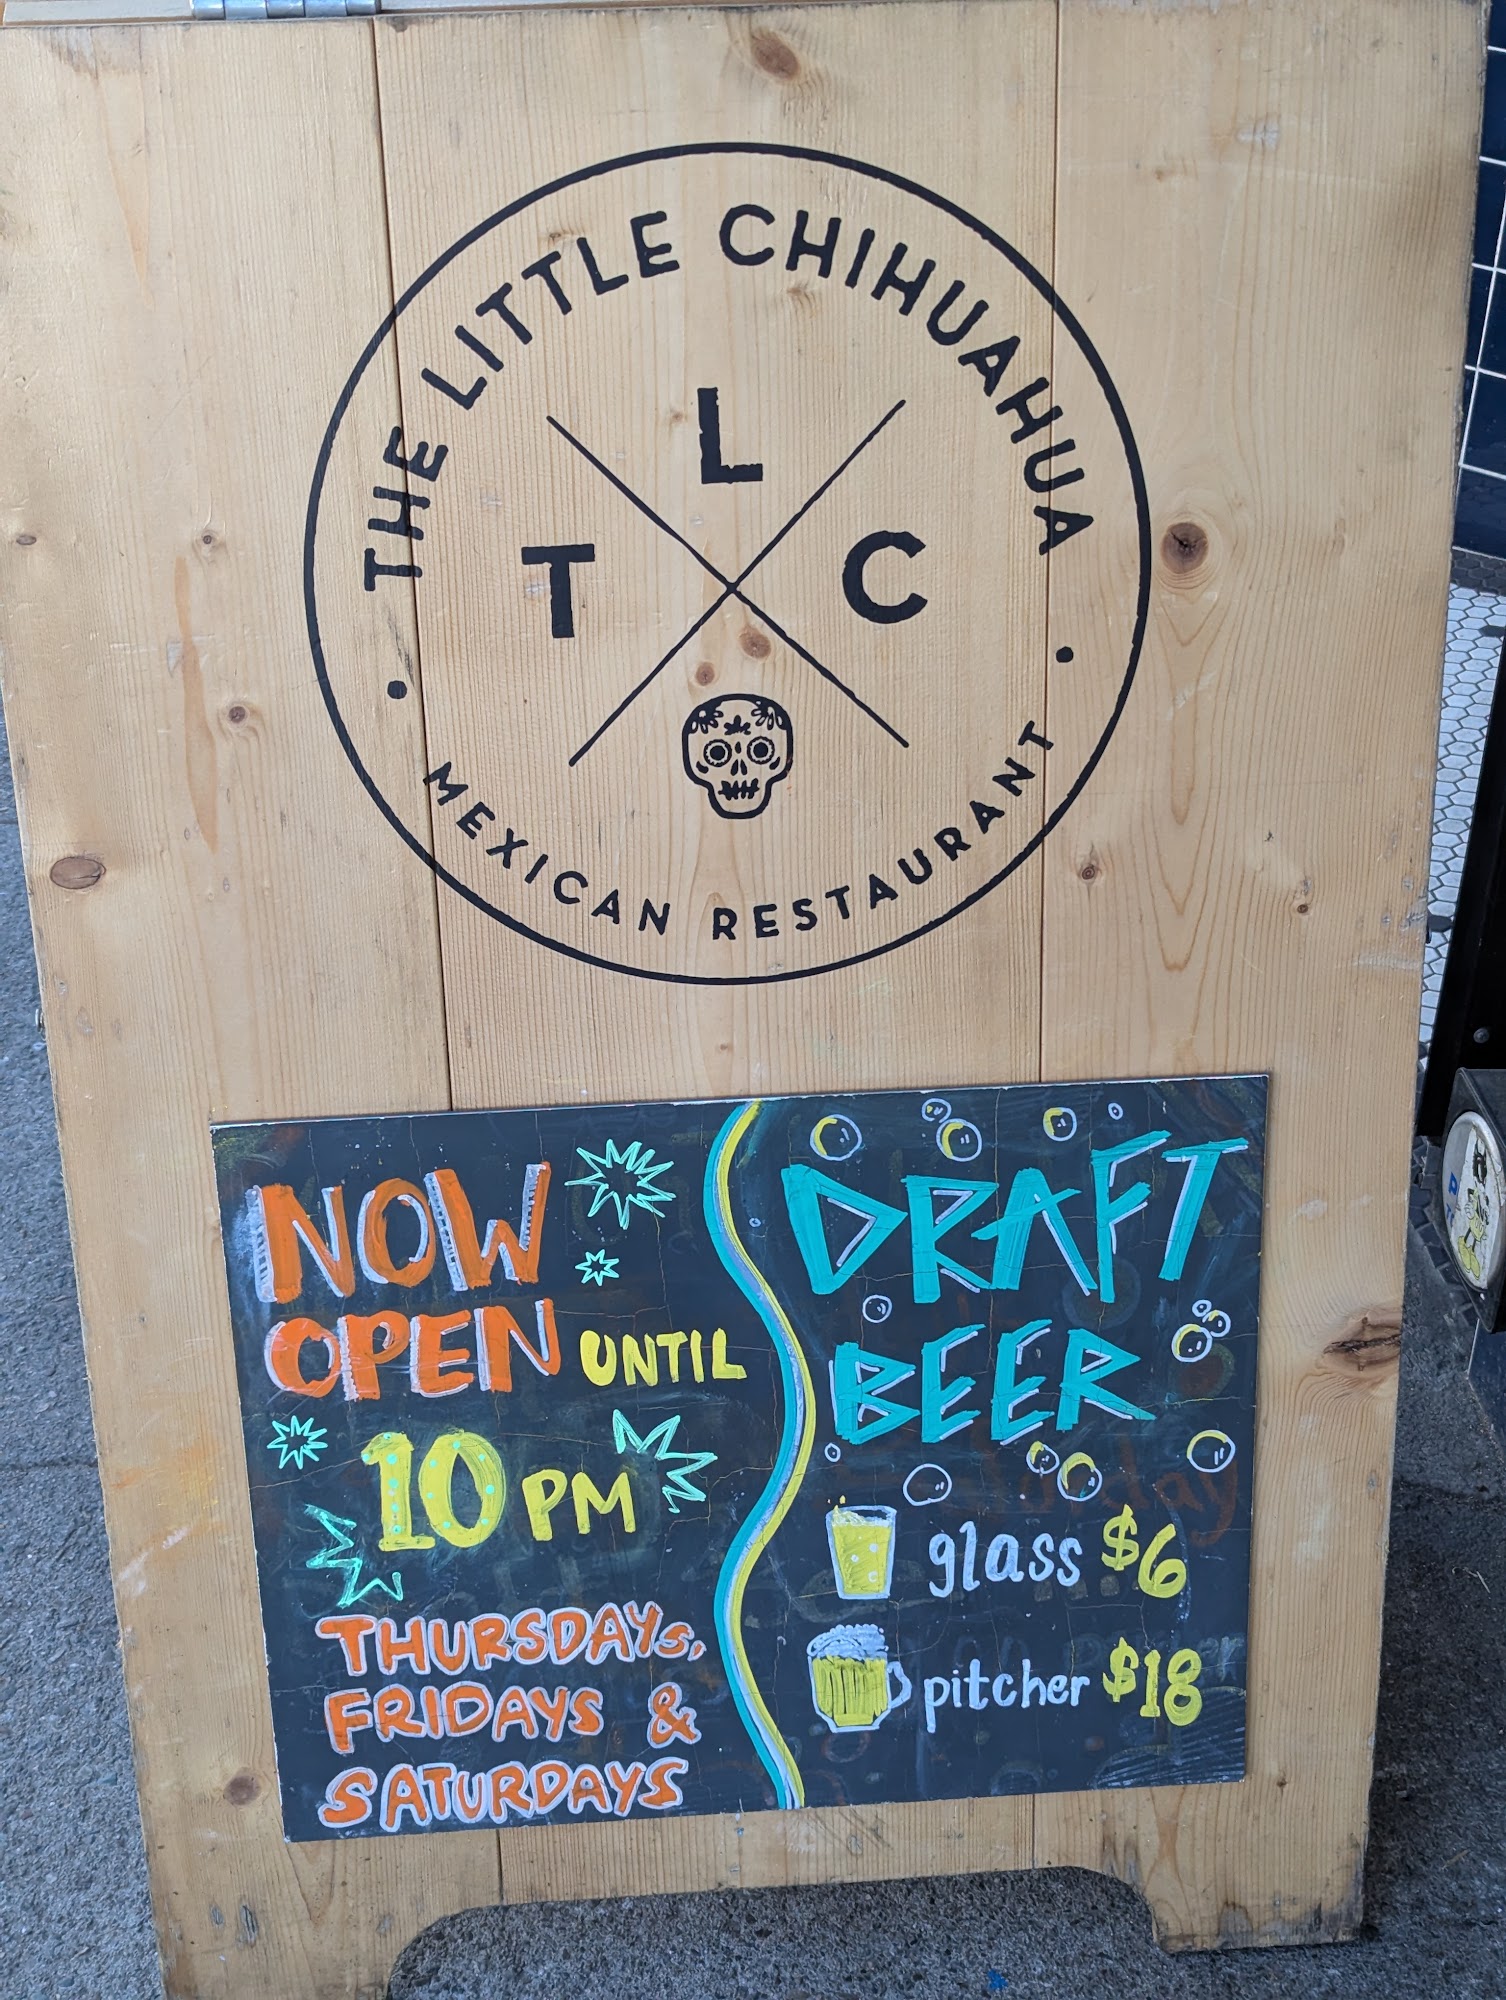 THE LITTLE CHIHUAHUA
L
T C
MEXICAN RESTAURANT
NOW
OPEN UNTIL
10 PM
THURSDAYS,
FRIDAYS &
SATURDAYS
DRAFT
BEER
glass $6
pitcher $18